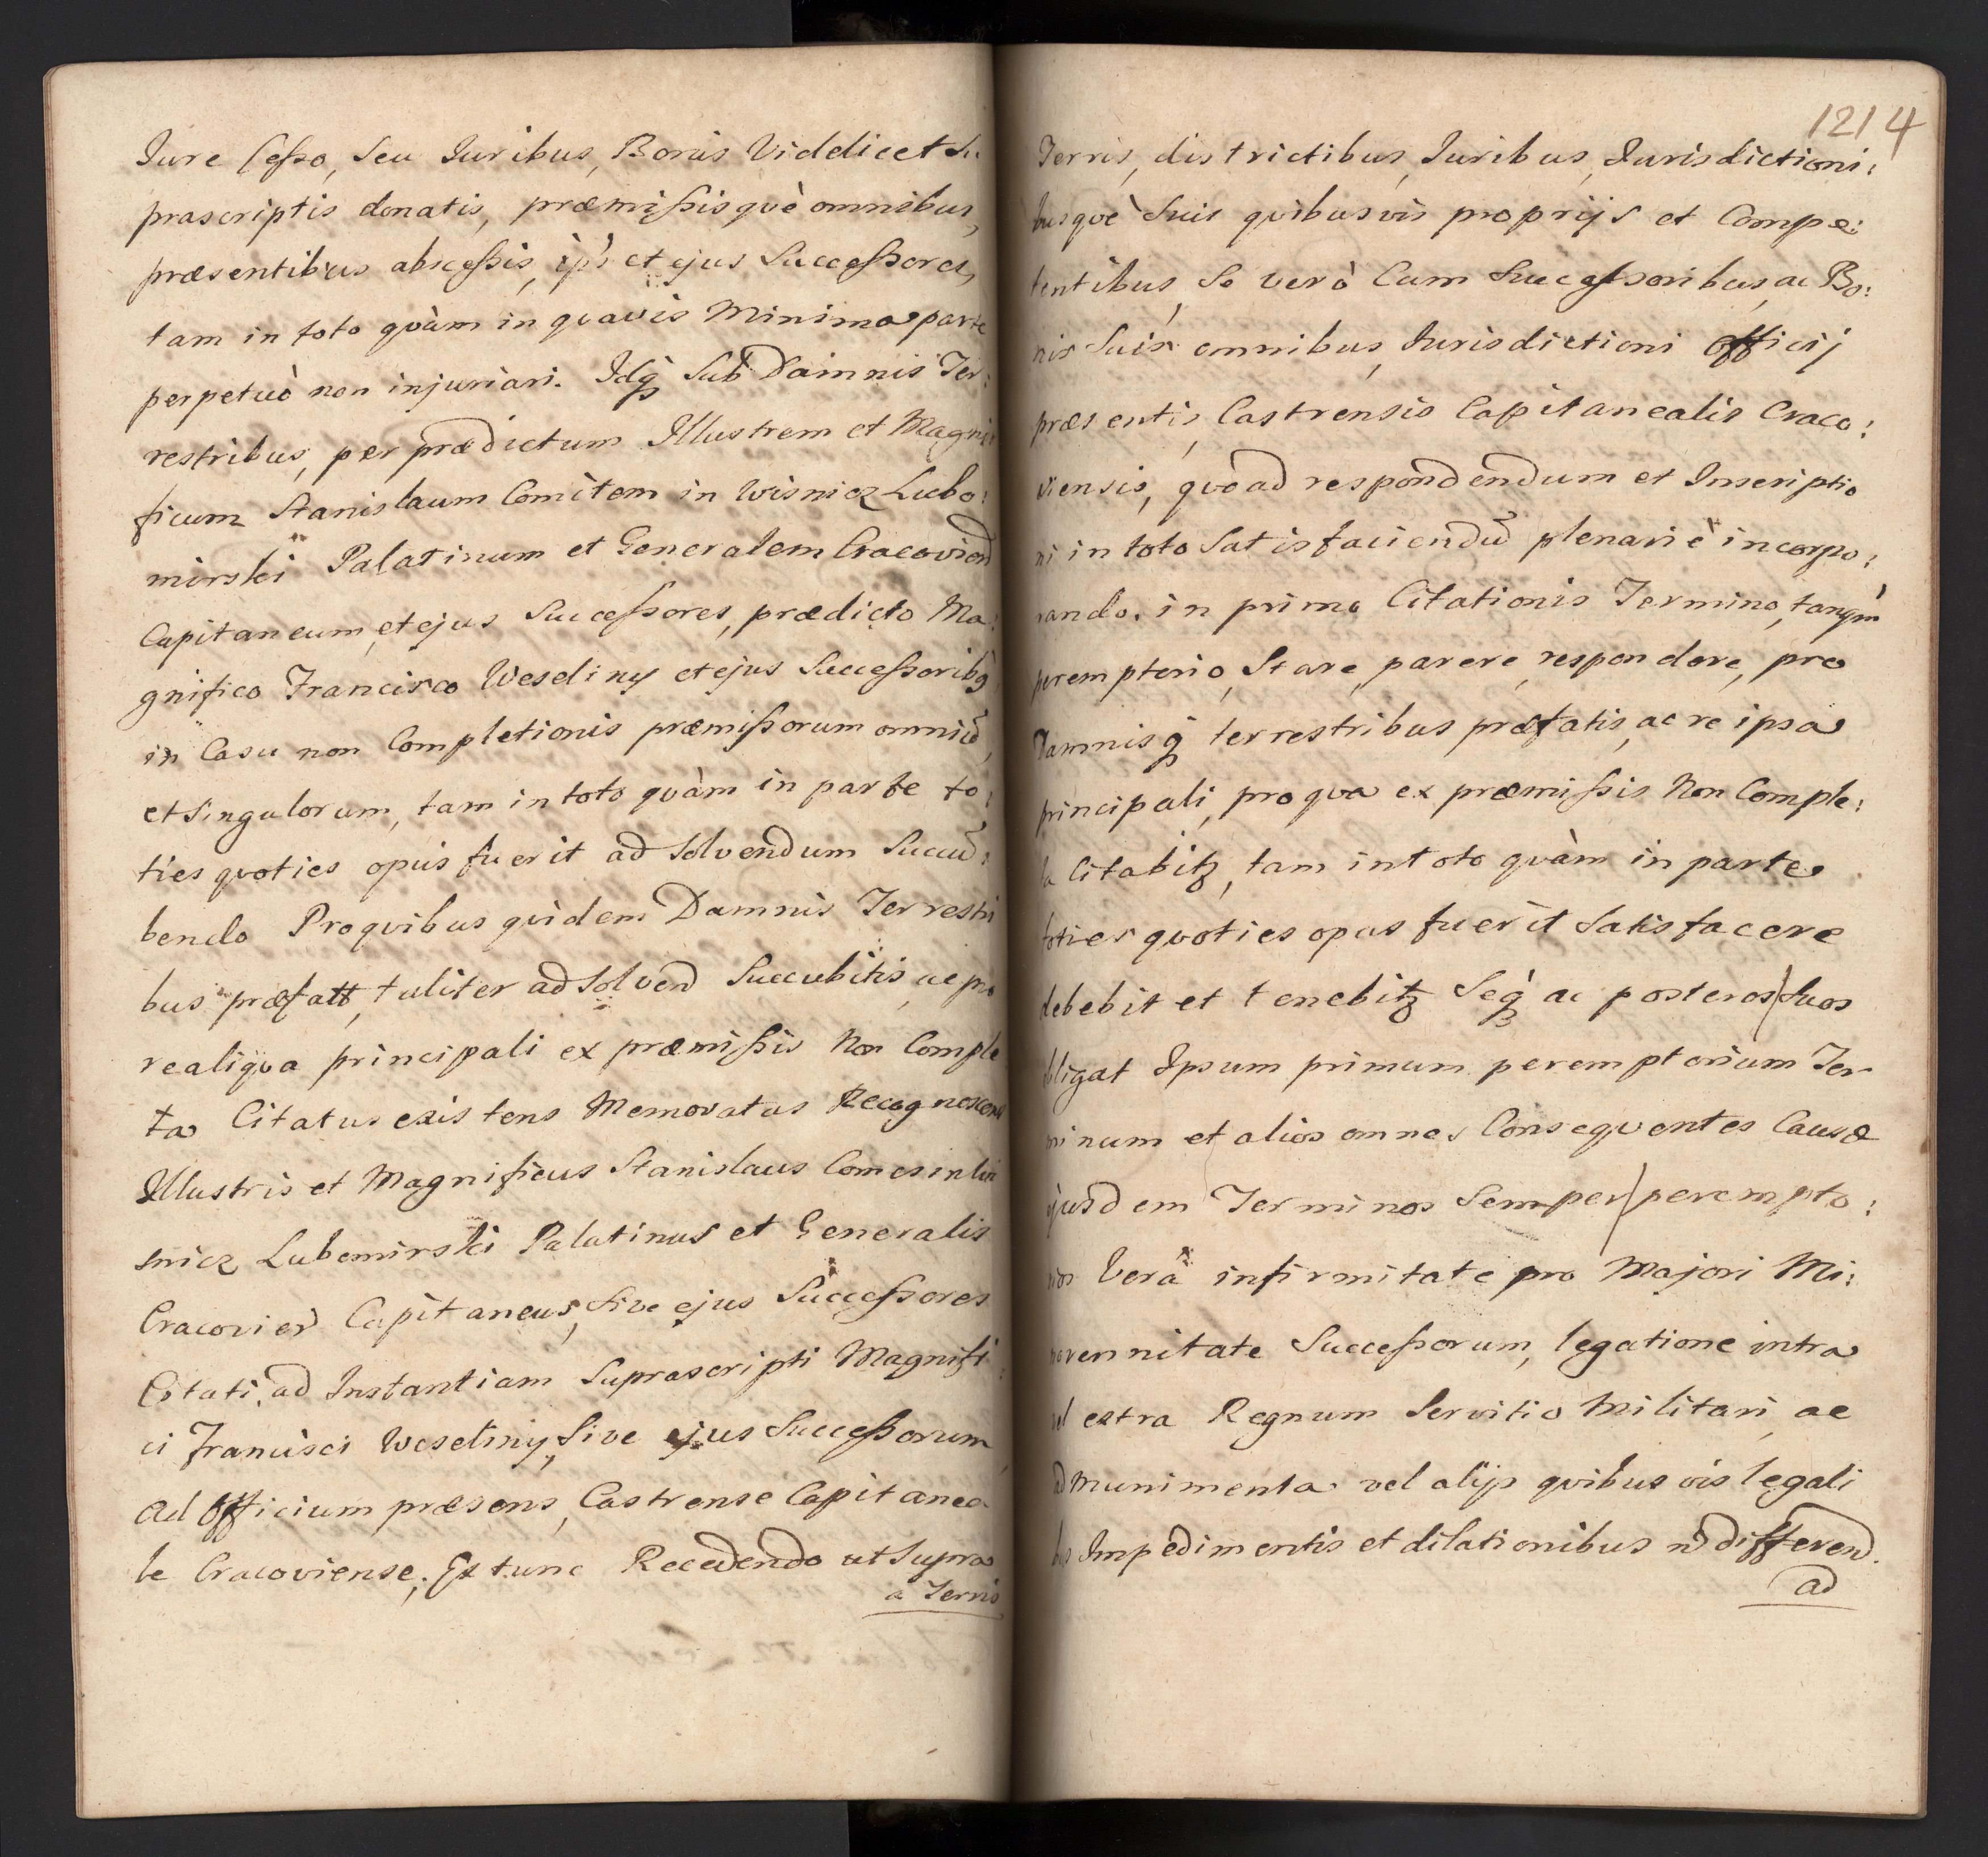 Jure Cesso, Seu Juribus, Bonis Viddicet Su
prascriptis donatis, præmissisquè omnibus,
præsentibus abscessis, ipś et ejus Successores,
tam in toto quàm in quavis Minima parte
perpetuò non injuriari. Idq́ Sub Damnis Ter:
restribus, per prædictum Illustrem et Magni
ficum Stanislaum Comitem in Wisnicz Lubo:
mirski Palatinum et Generalem Cracoviend
Capitaneum, et ejus Successores, prædicto Ma:
gnifico Francisco Weseliny et ejus Successoribq
in Casu non Completionis præmissorum omniū,
et Singulorum, tam in toto quàm in parte to:
ties quoties opus fuerit ad Solvendum Succū:
bendo Proquibus quidem Damnis Terrestri
bus præfatt, taliter ad Solvend Succubitis, ac pro
realiqua principali ex præmissis Non Comple
ta Citatus existens Memoratus Recognoscens
Illustris et Magnificus Stanislaus Comes in Wi
snicz Lubomirski Palatinus et Generalis
Cracovień Capitaneus, Sive ejus Successores
Citati, ad Instantiam Suprascripti Magnifi:
ci Francisci Weseliny, Sive ejus Successorum,
ad Officium præsens, Castrense Capitanea
le Cracoviense; Ex tunc Recedendo ut Supra
a Terris
1214
Terris, districtibus, Juribus, Jurisdictioni:
busquè Suis quibusvis proprijs et Compe:
tentibus, Se verò Cum Successoribus, ac Bo:
nis Suis omnibus, Jurisdictioni officij
præsentis, Castrensis Capitanealis Craco:
viensis, quoad respondendum et Inscriptio
ni in toto Satisfaciendū plenariè incorpo:
rando. in primo Citationis Termino, tanqm̀
peremptorio, Stare, parere, respondere, pro
Damnisq́ terrestribus præfatis, ac re ipsa
principali, pro qua ex præmissis Non Comple:
ta Citabitz, tam in toto quàm in parte
toties quoties opus fuerit Satisfacere
debebit et tenebitz Seq́ ac posteros Suos
obligat Ipsum primum peremptorium Ter
minum et alios omnes Consequentes Causæ
ejusdem Terminos Semper perempto:
rios Verâ infirmitate pro Majori Mi:
norennitate Successorum, legatione intra
vel extra Regnum Servitio Militari, ac
ad munimenta vel alijs quibusvis legali
bus Impedimentis et dilationibus n̄ differend.
ad